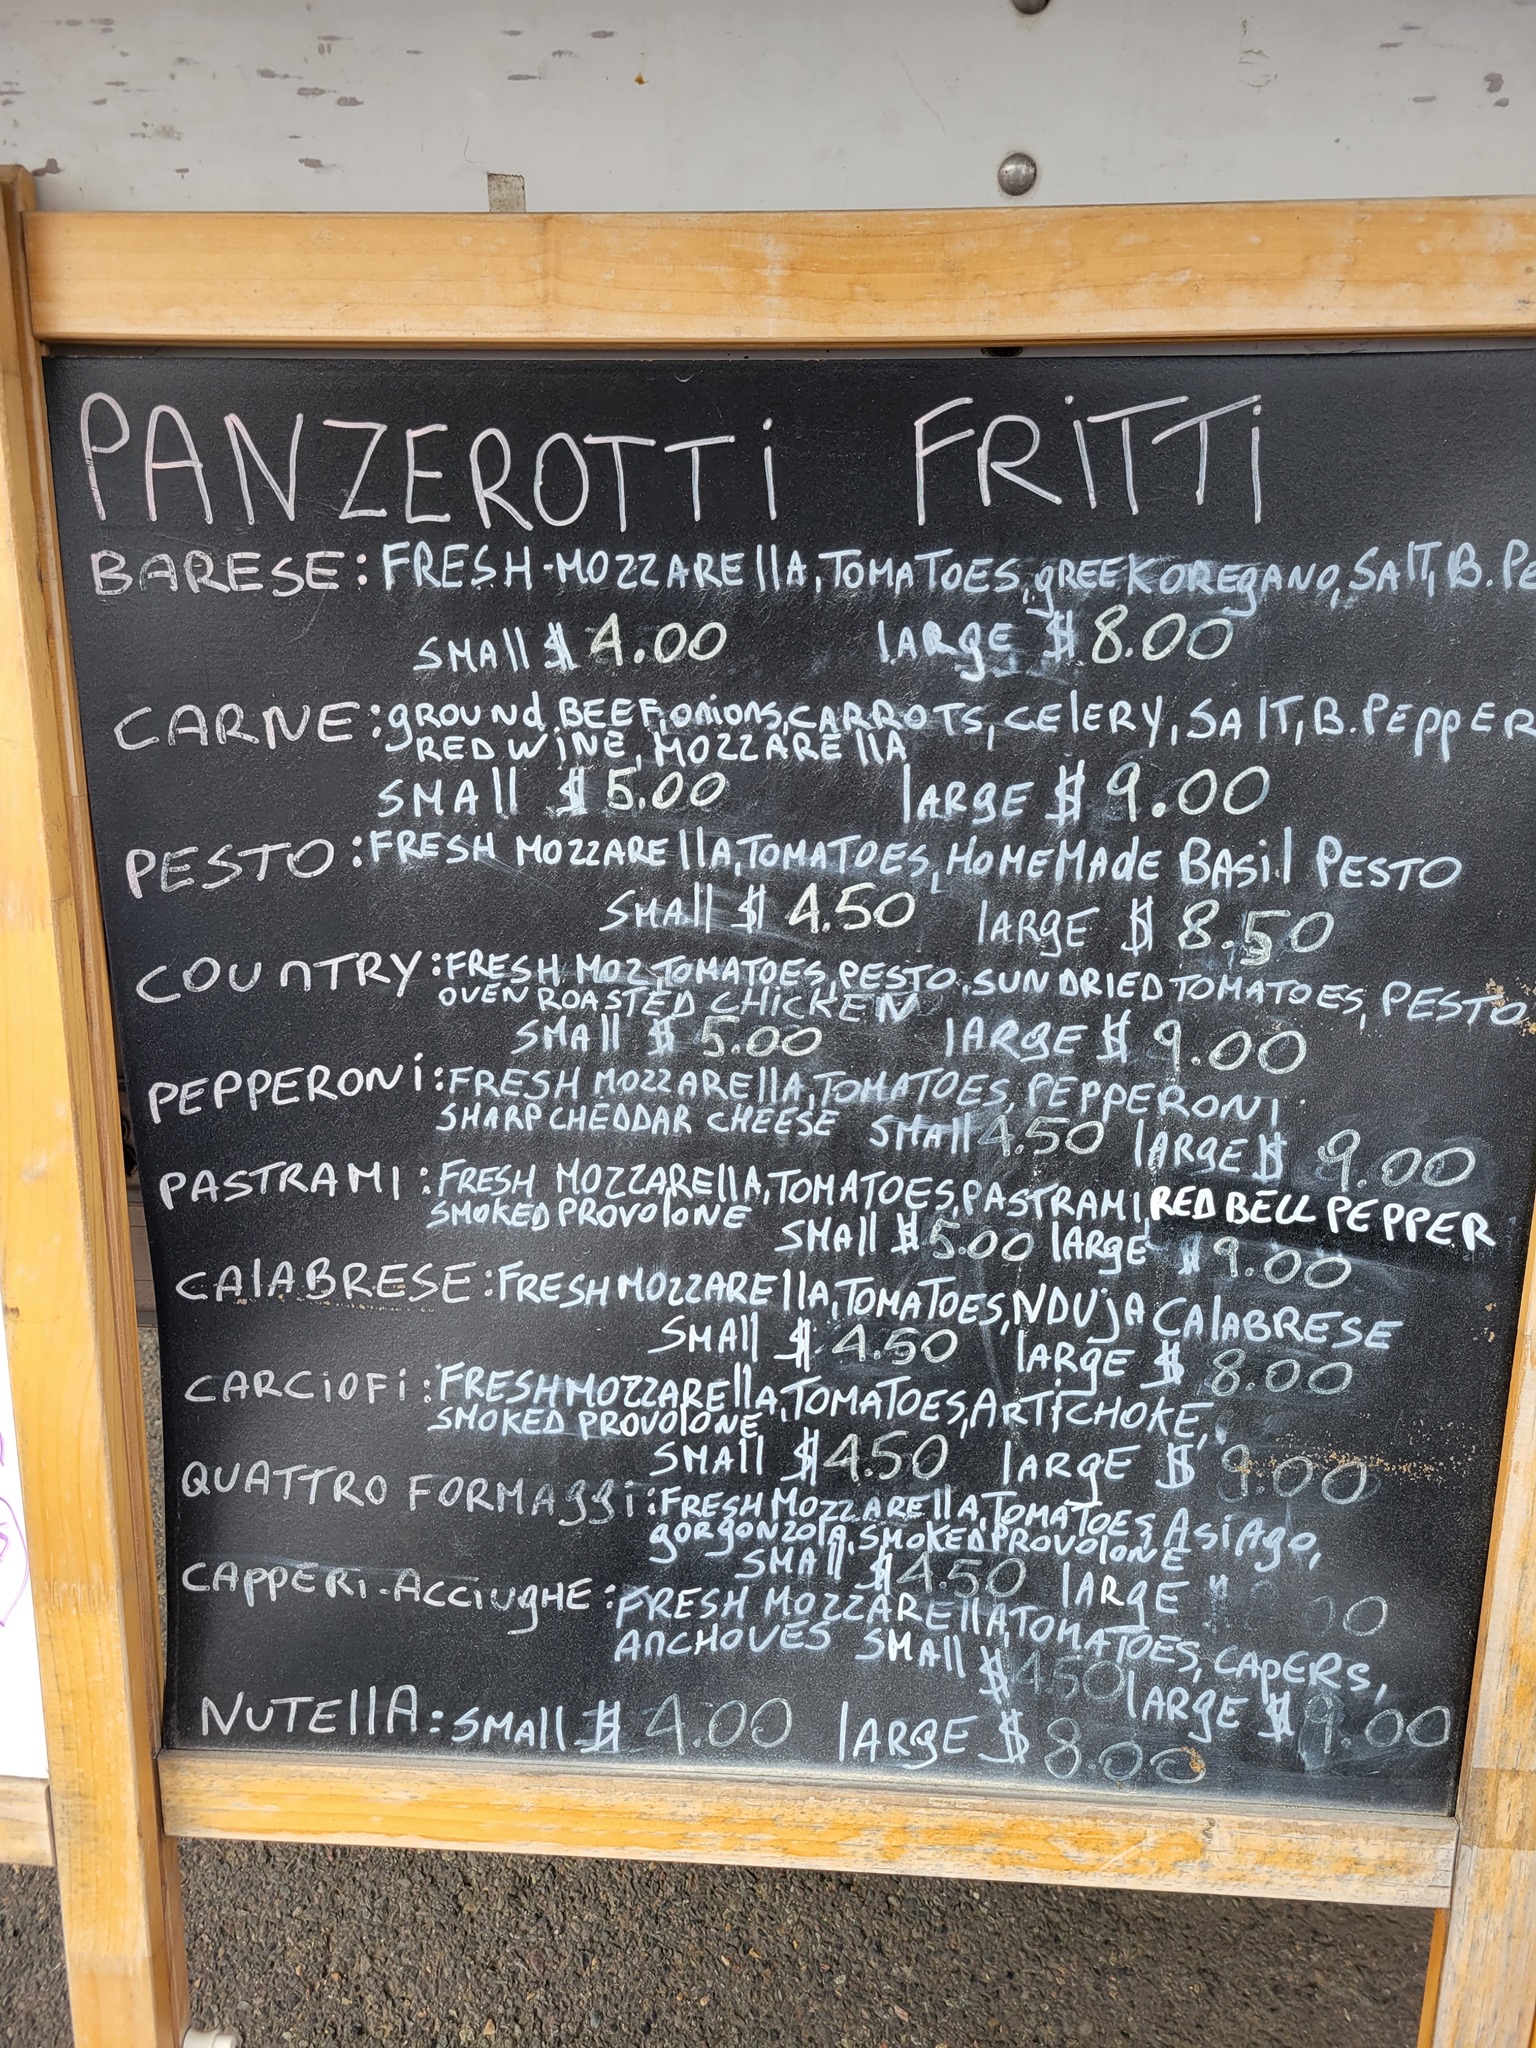 PANZEROTTi FRiTTi
BARESE: FRESH-MOZZARElla, TOMATOES, gREEK OREgANO, SAlT, B. PE
SMAll $ 4.00 lARgE $ 8.00
CARNE: gROUNd BEEF, onions, CARROTS, CElERY, SAlT, B. PEppER
RED WiNE, MOZZARElla
SMAll $ 5.00 lARgE $ 9.00
PESTO: FRESH MOZZARElla, TOMATOES, HOMEMAdE BASil PESTO
SMAll $ 4.50 lARgE $ 8.50
COUnTRY: FRESH MOZ TOMATOES, PESTO, SUN DRIED TOMATOES, PESTO
OVEN ROASTED CHICKEN
SMAll $ 5.00 lARGE $ 9.00
PEPPERONi: FRESH MOZZARElla, TOMATOES, PEPPERONI
SHARP CHEDDAR CHEESE SMAll 4.50 lARgE $ 9.00
PASTRAMI: FRESH MOZZARElla, TOMATOES, PASTRAMI, RED BELL PEPPER
SMOKED PROVOlONE SMAll $ 5.00 lARgE $ 9.00
CAlABRESE: FRESH MOZZARElla, TOMATOES, NDUjA CAlABRESE
SMAll $ 4.50 lARgE $ 8.00
CARCiOFi: FRESH MOZZARElla, TOMATOES, ARTiCHOKE,
SMOKED PROVOlONE
SMAll $ 4.50 lARgE $ 9.00
QUATTRO FORMAggi: FRESH MOZZARElla, TOMATOES, ASiAgO,
gORgONZOlA, SMOKED PROVOlONE
SMAll $ 4.50 lARgE
CAPPERi-ACCiUgHE: FRESH MOZZARElla, TOMATOES, CAPERS,
AnCHOVES SMAll $ 4.50 lARgE $ 9.00
NUTEllA: SMAll $ 4.00 lARgE $ 8.00